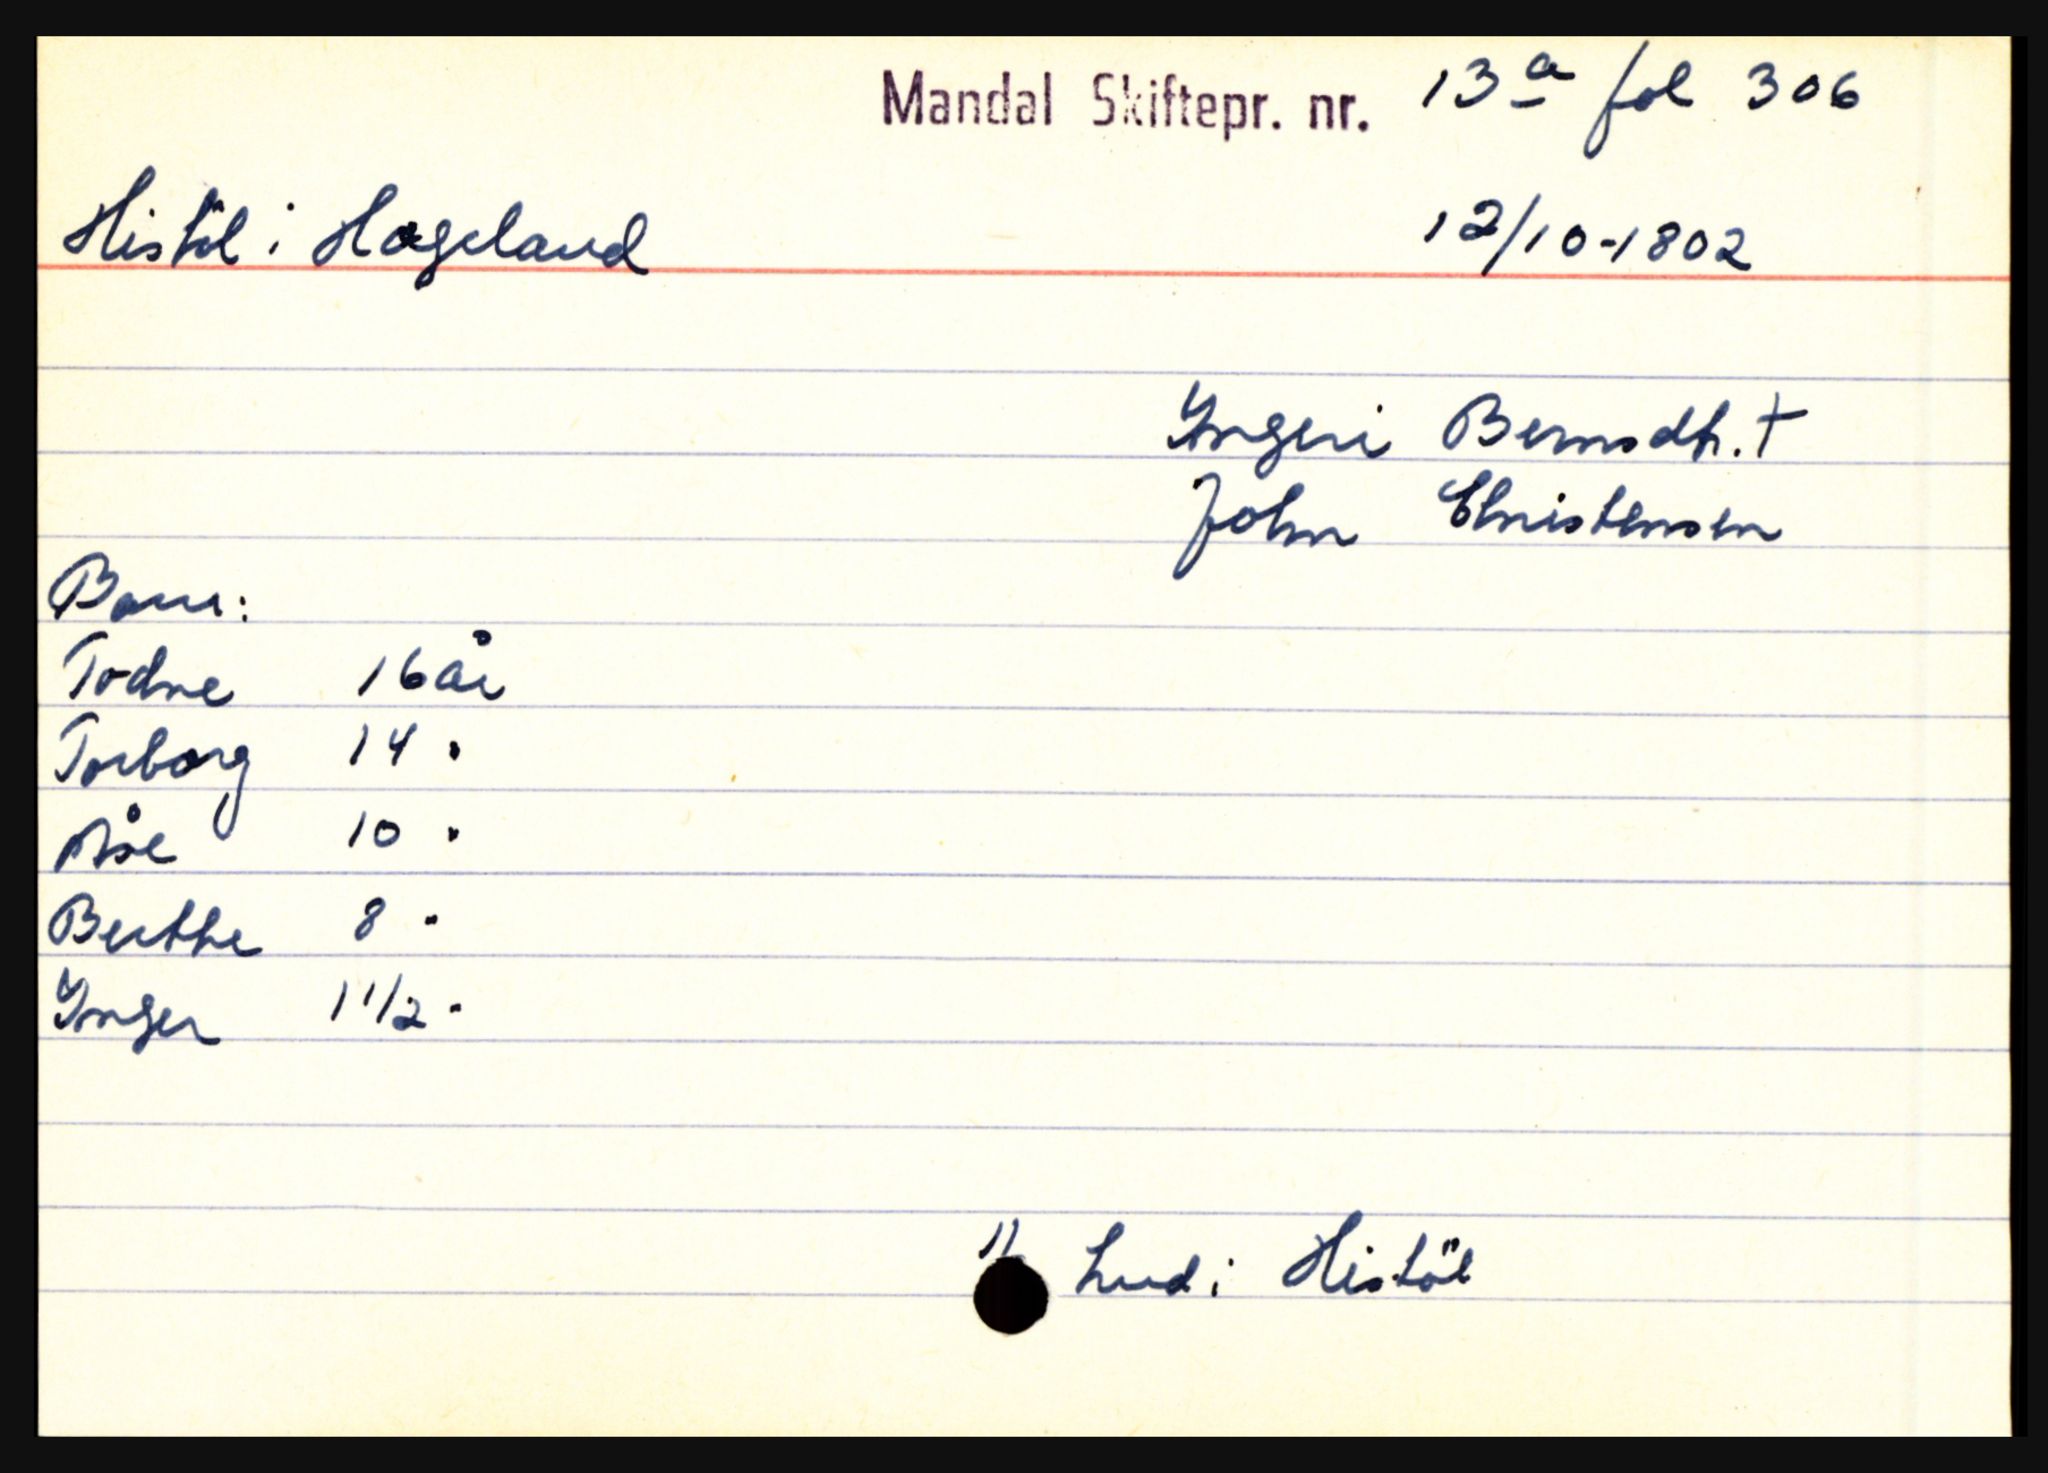 Mandal Skiftepr. nr. 13a fol 306
Histöl i Hageland 12/10-1802
Yngeri Bernsdtr. †
John Christensen
Barn:
Todne 16 år
Torborg 14 "
Åse 10 "
Berthe 8 "
Ynger 1 1/2 "
Lud i Histöl